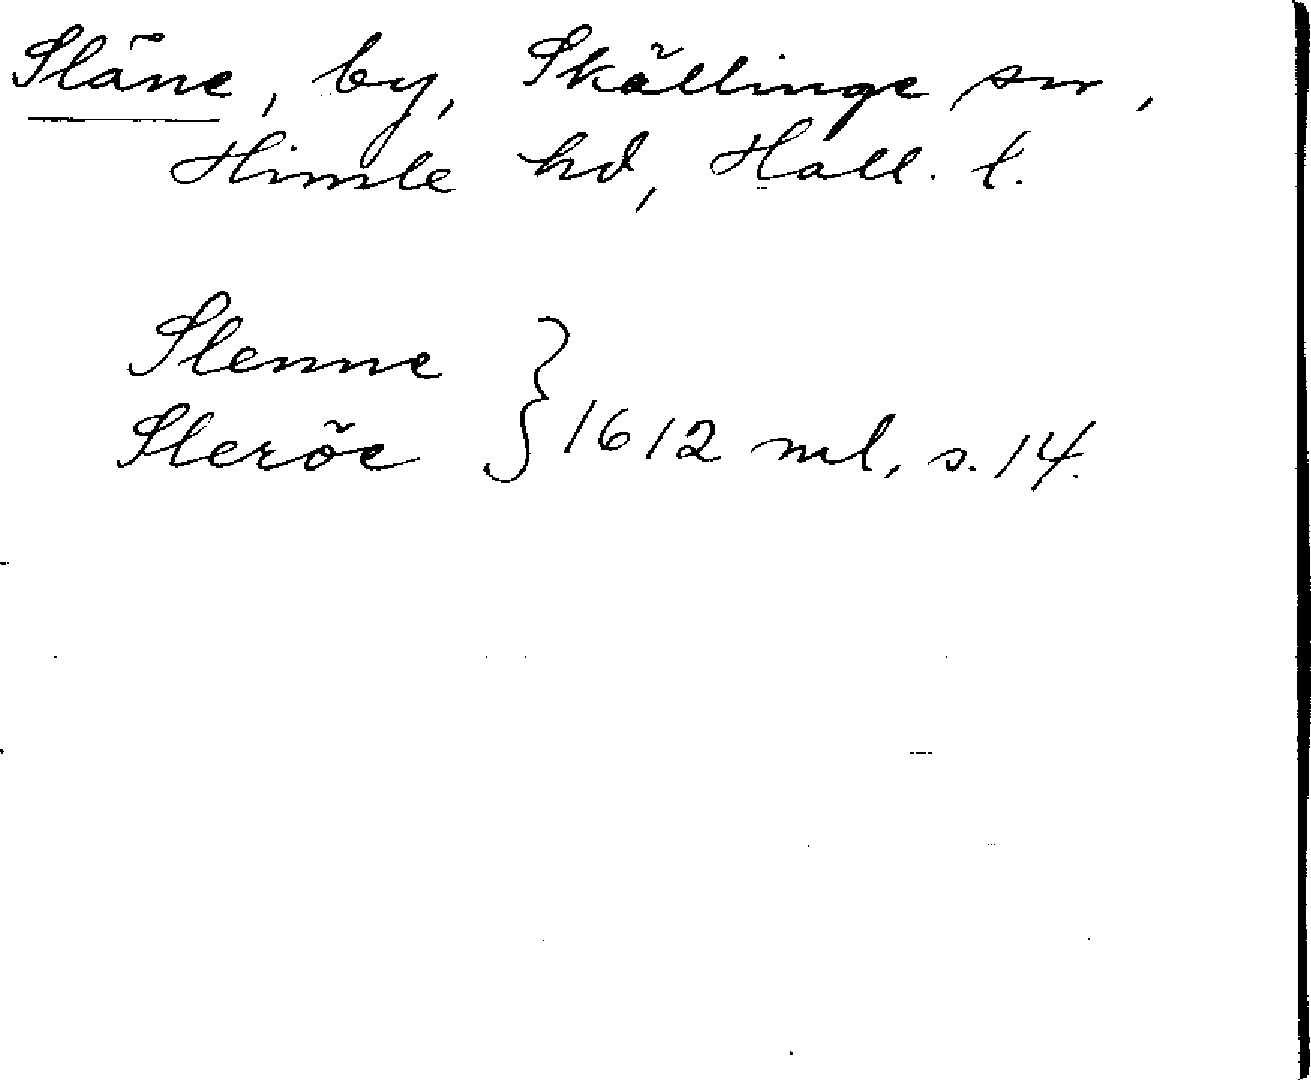 Släne, by, Skällinge sn,
Himle hd, Hall. l.
Slenne
Sleröe } 1612 ml, s. 14.